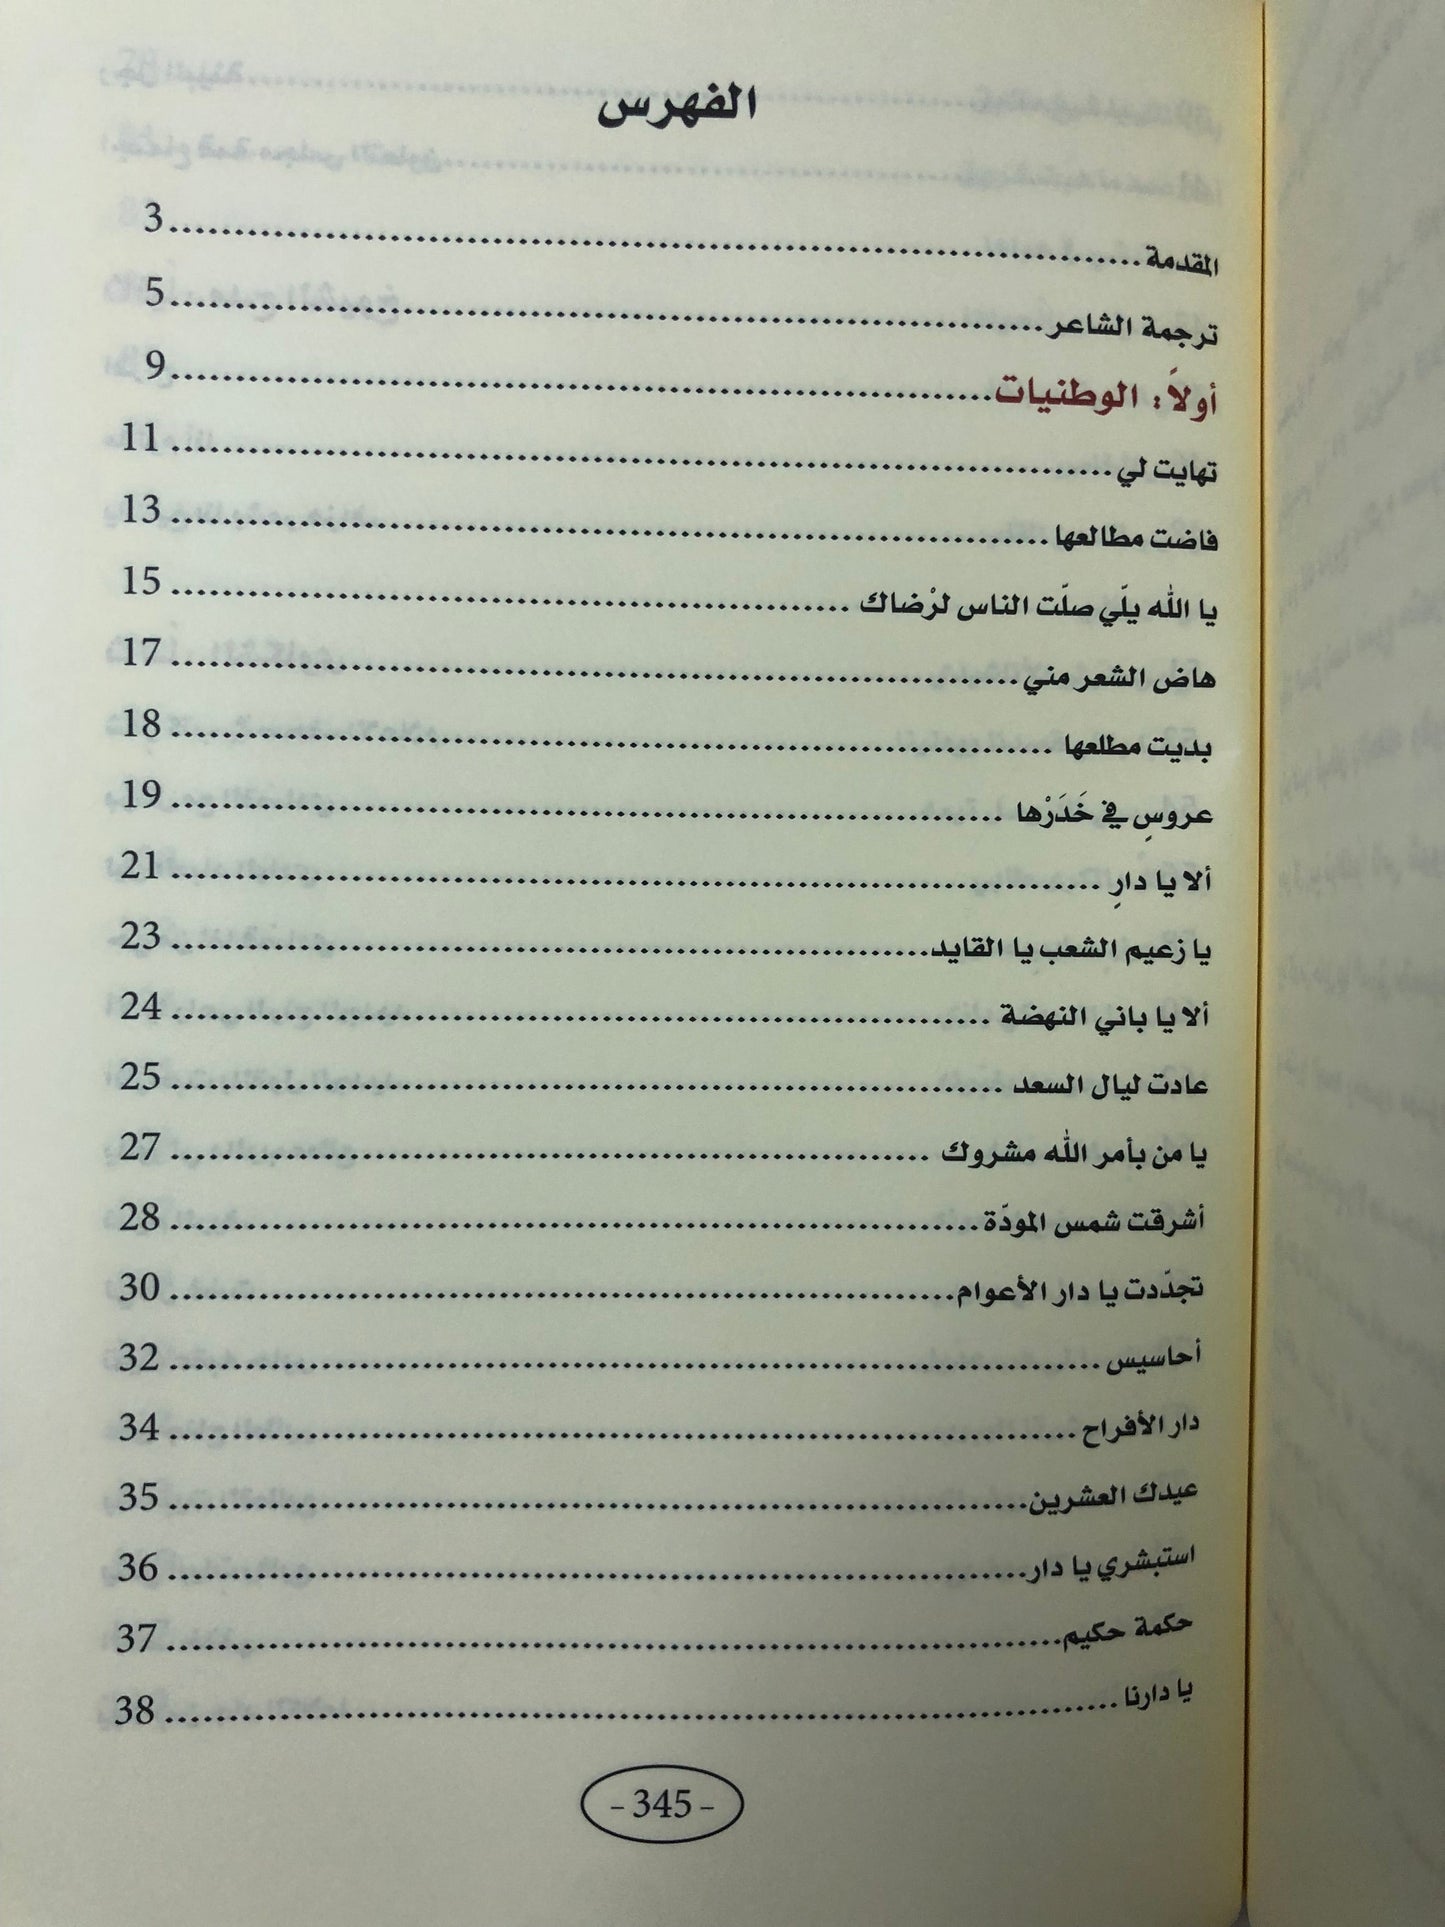 الفهرس
المقدمة........................................ 3
ترجمة الشاعر........................................ 5
أولاً: الوطنيات........................................ 9
تهايت لي........................................ 11
فاضت مطالعها........................................ 13
يا الله يلّي صلّت الناس لرْضاك........................................ 15
هاض الشعر مني........................................ 17
بديت مطلعها........................................ 18
عروسِ في خَدَرْها........................................ 19
ألا يا دارِ........................................ 21
يا زعيم الشعب يا القايد........................................ 23
ألا يا باني النهضة........................................ 24
عادت ليال السعد........................................ 25
يا من بأمر الله مشروك........................................ 27
أشرقت شمس المودّة........................................ 28
تجدّدت يا دار الأعوام........................................ 30
أحاسيس........................................ 32
دار الأفراح........................................ 34
عيدك العشرين........................................ 35
استبشري يا دار........................................ 36
حكمة حكيم........................................ 37
يا دارنا........................................ 38
- 345 -